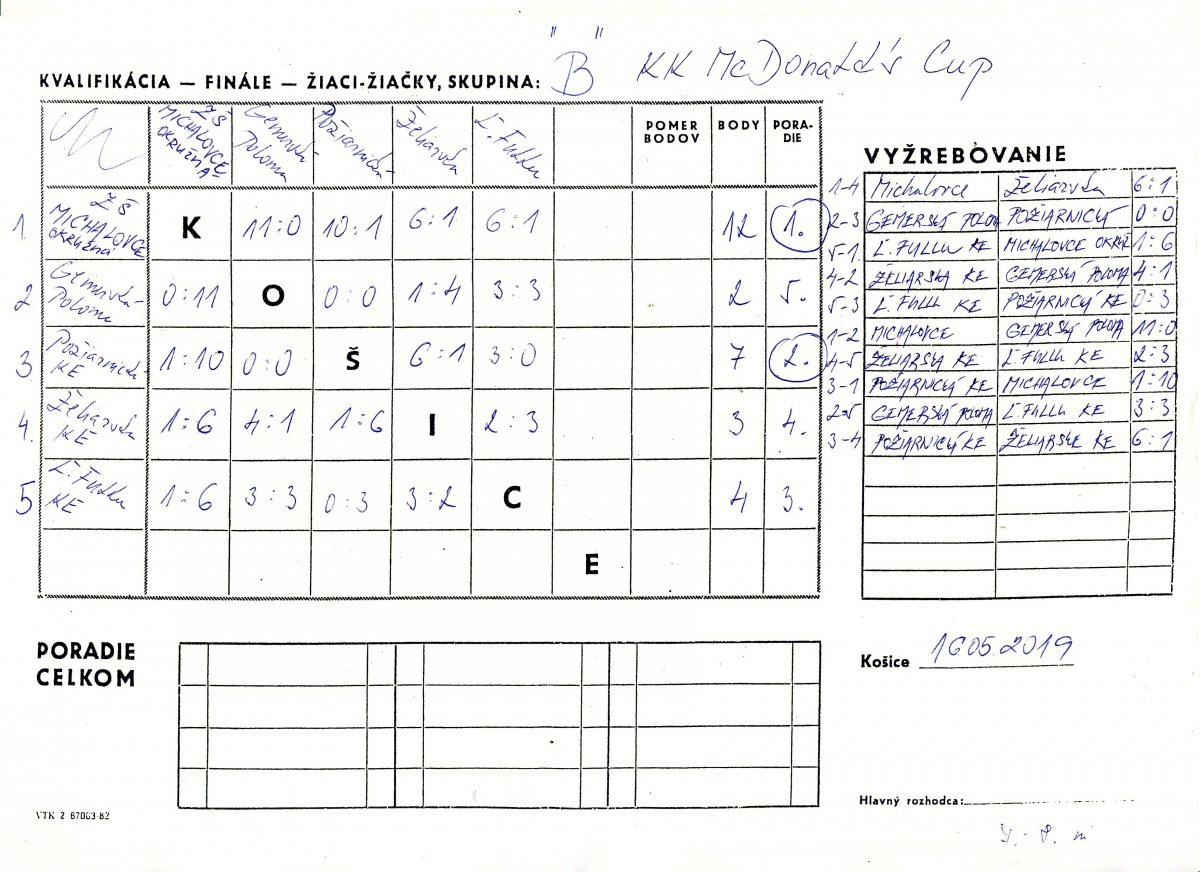 "B" KK McDonald's Cup
KVALIFIKÁCIA — FINÁLE — ŽIACI-ŽIAČKY, SKUPINA:
ZŠ MICHALOVCE OKRUŽNÁ Gemerská Poloma Požiarnická Želiarska Ľ. Fullu POMER BODOV BODY PORA-DIE
1 ZŠ MICHALOVCE OKRUŽNÁ K 11:0 10:1 6:1 6:1 12 1.
2 Gemerská Poloma 0:11 O 0:0 1:4 3:3 2 5.
3. Požiarnická KE 1:10 0:0 Š 6:1 3:0 7 2.
4. Želiarska KE 1:6 4:1 1:6 I 2:3 3 4.
5 Ľ. Fullu KE 1:6 3:3 0:3 3:2 C 4 3.
E
VYŽREBOVANIE
1-4 Michalovce Želiarska 6:1
2-3 GEMERSKÁ POLOM POŽIARNICKÁ 0:0
5-1. Ľ. FULLU KE MICHALOVCE OKRUŽ 1:6
4-2 ŽELIARSKA KE GEMERSKÁ POLOMA 4:1
5-3 Ľ. FULLU KE POŽIARNICKÁ KE 0:3
1-2 MICHALOVCE GEMERSKÁ POLOMA 11:0
4-5 ŽELIARSKA KE Ľ. FULLU KE 2:3
3-1 POŽIARNICKÁ KE MICHALOVCE 1:10
2-5 GEMERSKÁ POLOMA Ľ. FULLU KE 3:3
3-4 POŽIARNICKÁ KE ŽELIARSKE KE 6:1
PORADIE
CELKOM
Košice 16 05. 2019
Hlavný rozhodca:
VTK 2 67003-82